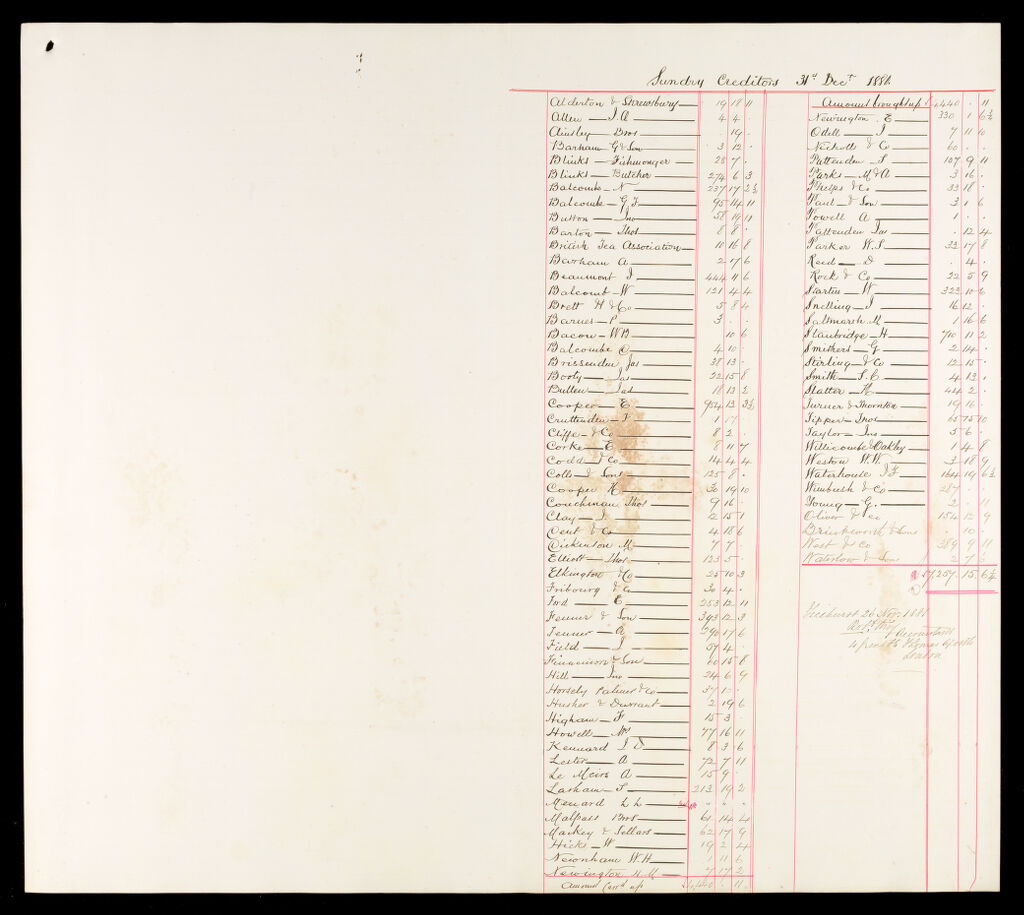 Sundry Creditors 31st Decr 1881
Alderton & Shrewsbury 19 18 11
Allen J.A 4 4 .
Ainsley Bros . 19 .
Barham G & Son 3 12 .
Blinks Fishmonger 28 7 .
Blinks Butcher 274 6 3
Balcombe N 237 17 2½
Balcombe G J 95 14 11
Button Jno 58 19 11
Barton Thos 8 8 .
British Tea Association 10 16 8
Barham A 2 17 6
Beaumont J 444 11 6
Balcomb W 121 4 4
Brett H & Co 5 8 4
Barnes P 3 . .
Bacon W B 10 6
Balcombe C 4 10 .
Brissenden Jas 28 13 .
Booty Jas 22 15 8
Butten Jas 18 13 2
Cooper E 13 3½
Cruttenden 1 17
Cliffe & Co 8 2 .
Corke E 8 11 7
Codd & Co 14 4 4
Colls & Sons 125 8 .
Cooper H 30 19 10
Couchman Thos 9 16 .
Clay J 12 15 1
Cent & Co 4 18 6
Dickinson M 7 7
Elliott Thos 123 5 .
Elkington & Co 25 10 3
Fribourg & Co 30 4 .
Ford E 253 12 11
Fenner & Son 393 12 3
Fenner A 17 6
Field J 57 4 .
& Son 15 8
Hill Jno 24 6 9
Horsely Palmer & Co 37
Husher & Durrant 2 19 6
Higham F 15 3 .
Howell 77 16 11
Kennard J D 8 3 6
Lester A 72 7 11
Le Meirs A 15 9 .
Lasham S 213 19 2
Menard L L " " "
Malpass Bros 61 14 4
Mackey & Sellars 62 17 9
Hicks W 19 2 4
Newnham W.H 1 11 6
Newington 7 17 2
Amount Carrd up 11
Amount brought up 11
Newington E 330 1 6½
Odell J 7 11 10
Nicholls & Co 60 . .
Puttenden S 107 9 11
Parks M & A 3 16 .
Phelps & Co 33 18 .
Paul & Son 3 1 6
Powell A 1 . .
Pattenden Jas . 12 4
Parker W.S 33 17 8
Reed D . 4 .
Rock & Co 22 5 9
Startin W 323 10 6
Snelling J 16 12 .
Saltmarsh M 1 16 6
Stanbridge H 11 2
Smithers G 2 14 .
Stirling & Co 12 15 .
Smith S.C 4 13 1
Slatter H 44 2 .
Turner & Thornton 19 16
Tipper Thos 65 15 10
Taylor Jno 5 6 .
Willicombe & Oakley 1 4 8
Weston W.W. 3 18 9
Waterhouse J F 164 19 6½
Wimbush & Co 287 . .
Young G. 2 . 11
Oliver & Co 154 12 9
& Sons . 10 .
West & Co 389 9 11
Waterlow & Sons 2 7
17,257 . 15 . 6½
Ticehurst 26 Nov. 1881
Accountants
London